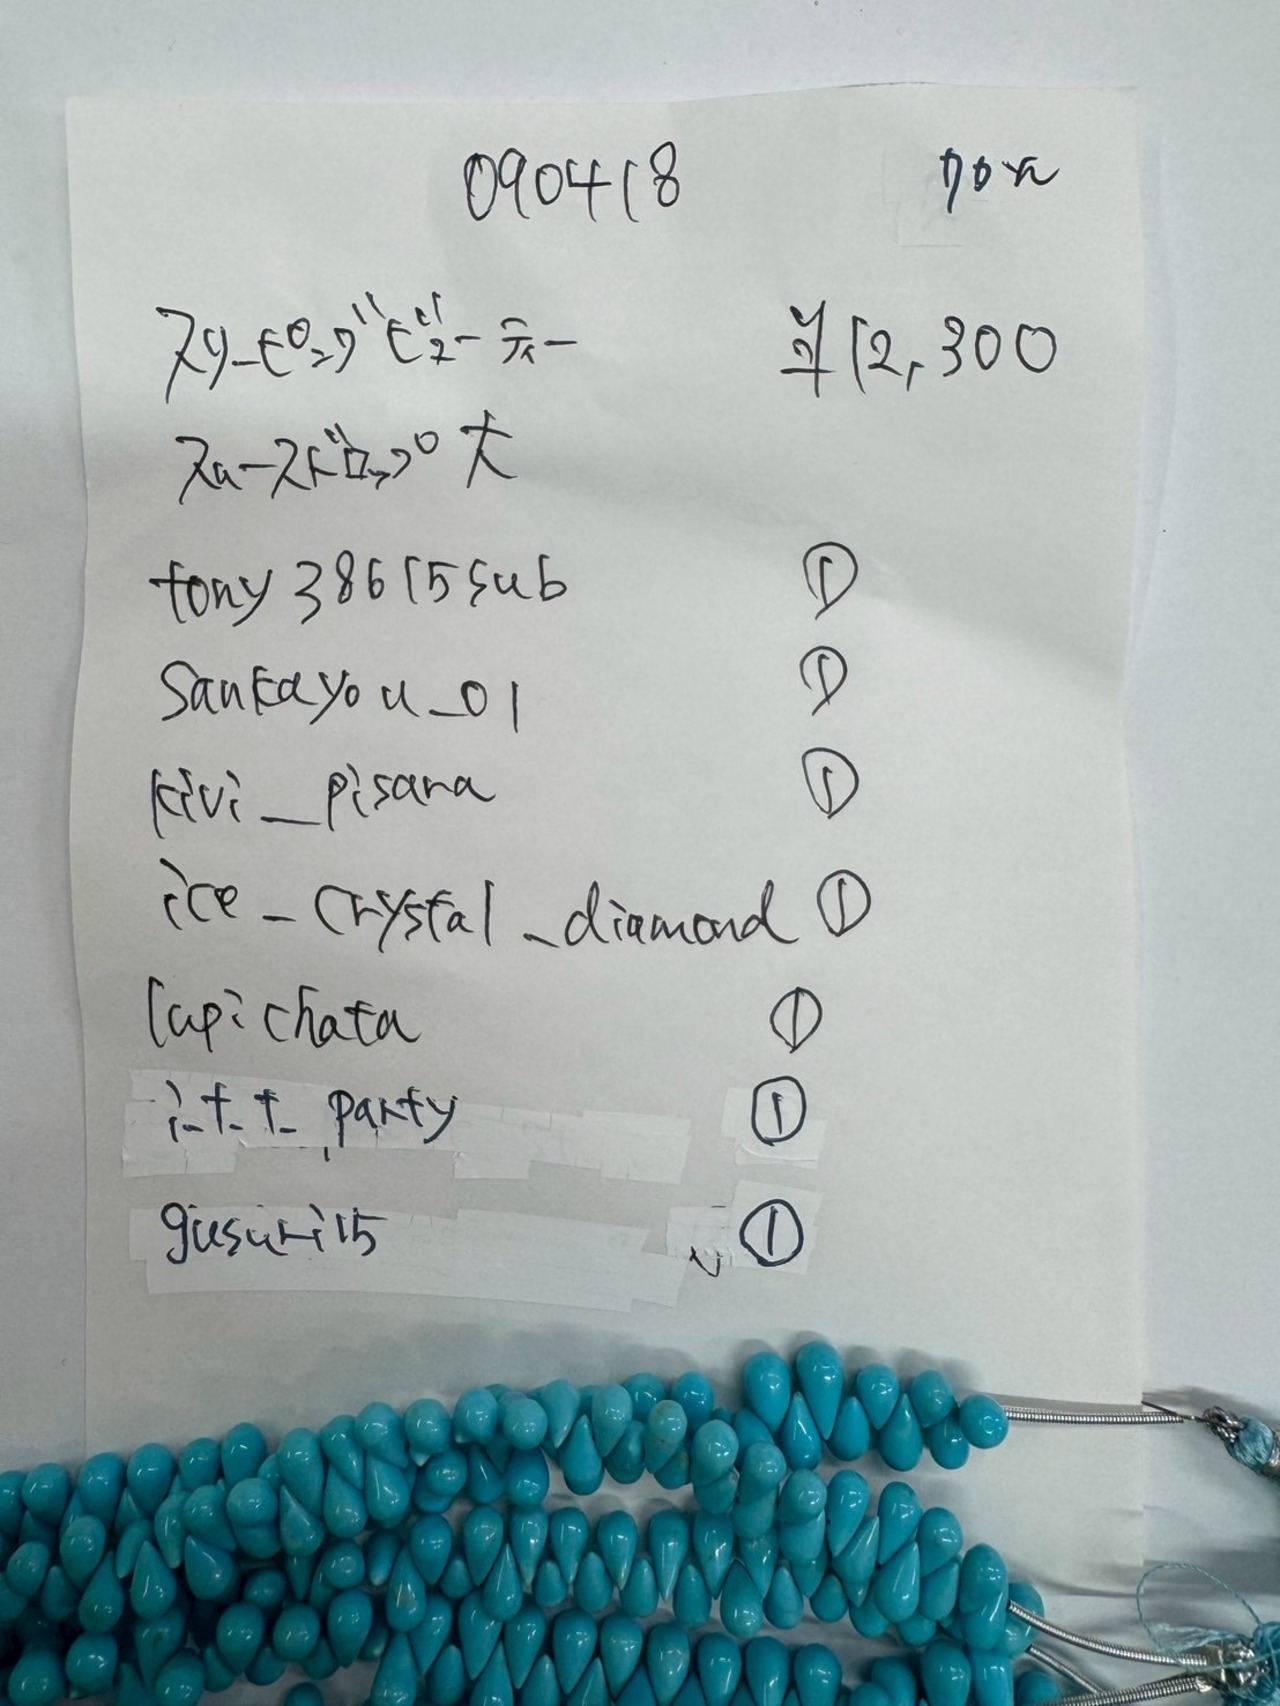 090418
スリーピングビューティー ¥12,300
スムースドロップ 大
tony38615sub ①
sankayou_01 ①
kivi_pisara ①
ice_crystal_diamond ①
lapichata ①
i_t_t_party ①
gusuri15 ①